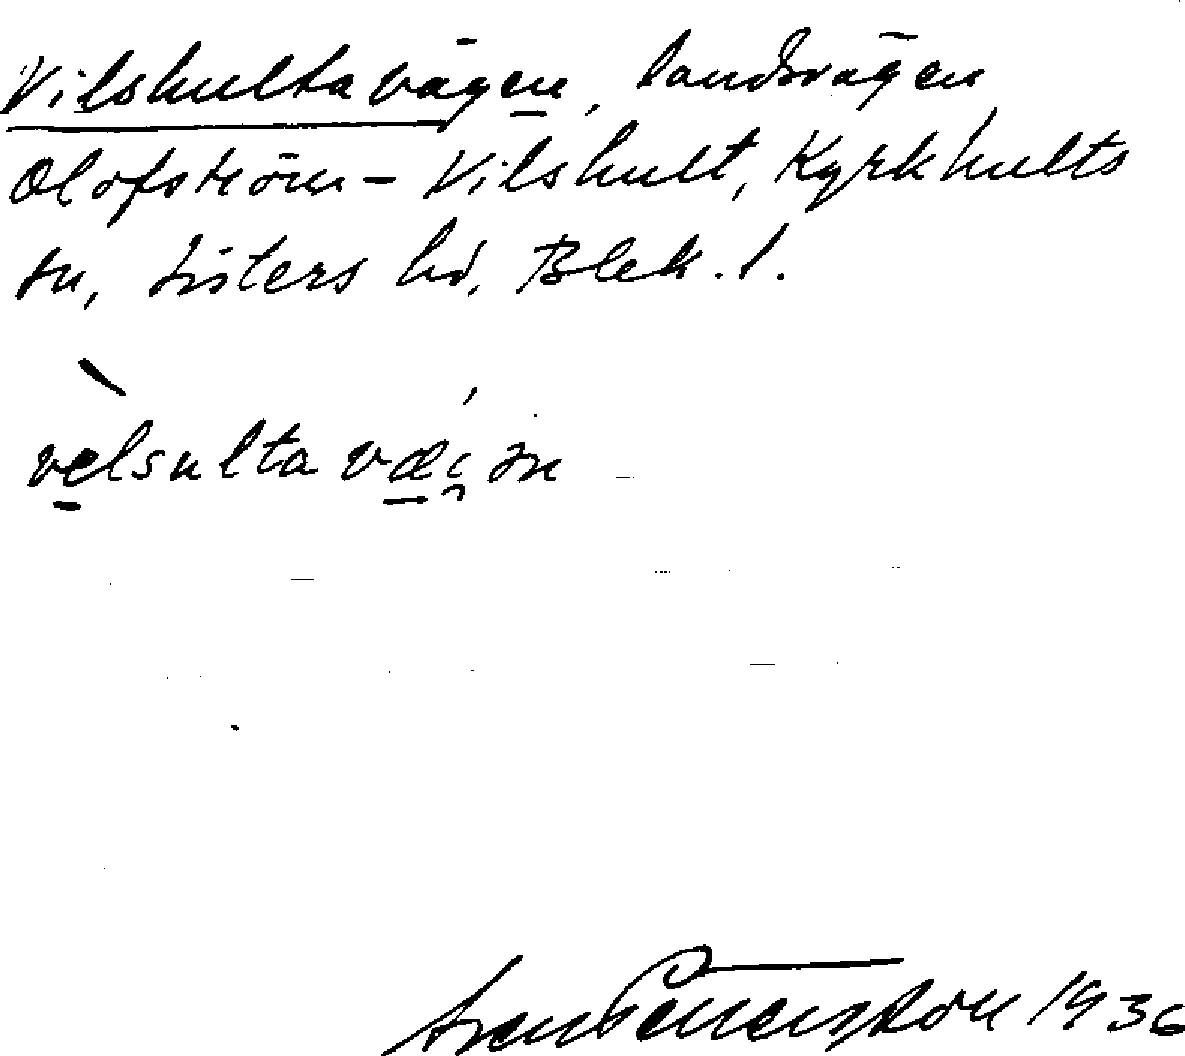 Vilshultavägen, landsvägen
Olofström - Vilshult, Kyrkhults
sn, Listers hd, Blek. l.
vèlsulta væ̀i̯ən
Sven Benson 1936